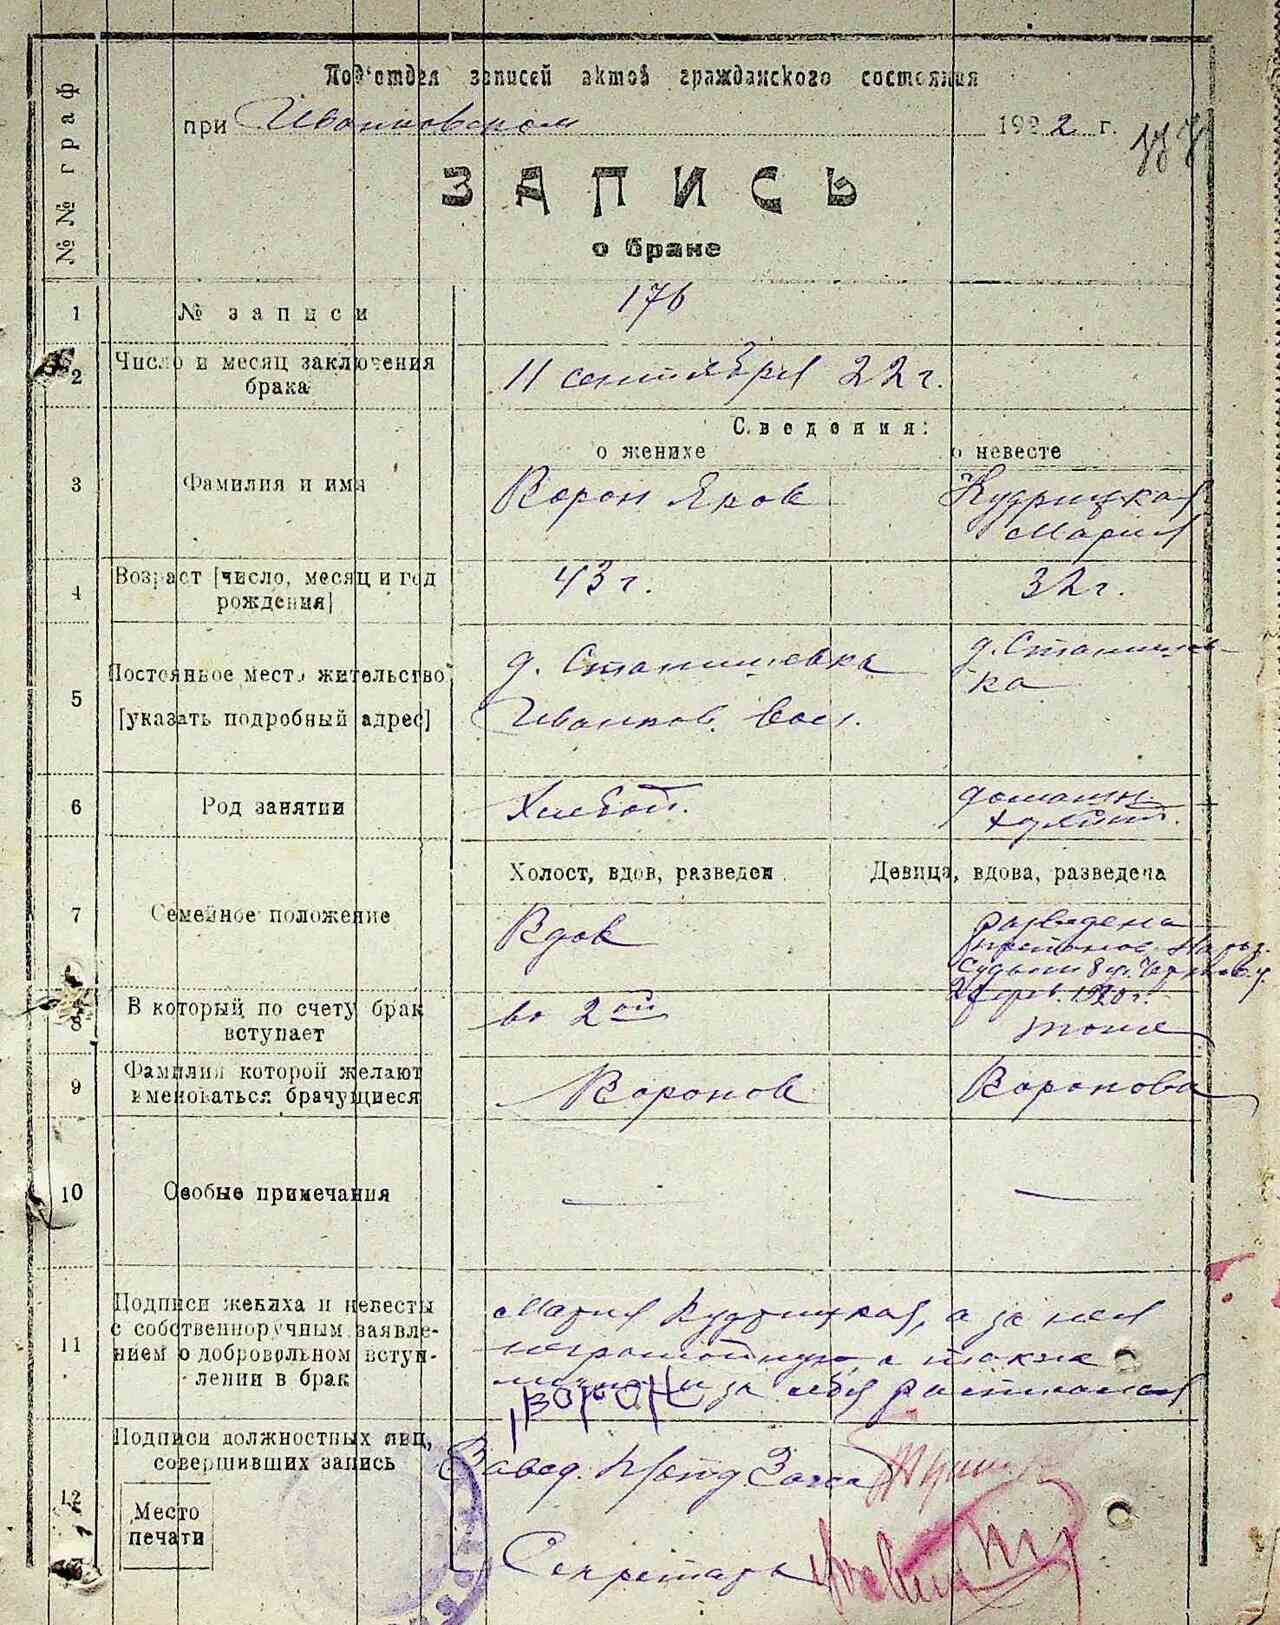 №№ граф
Под'отдел записей актов гражданского состояния
при Иванковском 1922 г.
ЗАПИСЬ
о браке
1 № записи 176
2 Число и месяц заключения брака 11 сентября 22 г.
Сведения:
о женихе о невесте
3 Фамилия и имя Ворон Яков Кудрицкая
Мария
4 Возраст [число, месяц и год рождения] 43 г. 32 г.
5 Постоянное место жительство
[указать подробный адрес]
д. Станишевка д. Станишев-
Иванков. вол. ка
6 Род занятии Хлебоп. домашн.
Холост, вдов, разведен Девица, вдова, разведена
7 Семейное положение Вдов разведена
8 В который по счету брак вступает во 2ой тоже
9 Фамилия которой желают именоваться брачущиеся Воронов Воронова
10 Особые примечания — —
11 Подписи жениха и невесты
с собственноручным заявле-
нием о добровольном вступ-
лении в брак
Мария Кудрицкая, а за нея
неграмотную, а также
и за себя расписался
ВОРОН
12 Подписи должностных лиц,
совершивших запись
Место
печати
Завед. П/отд Загса
Секретарь